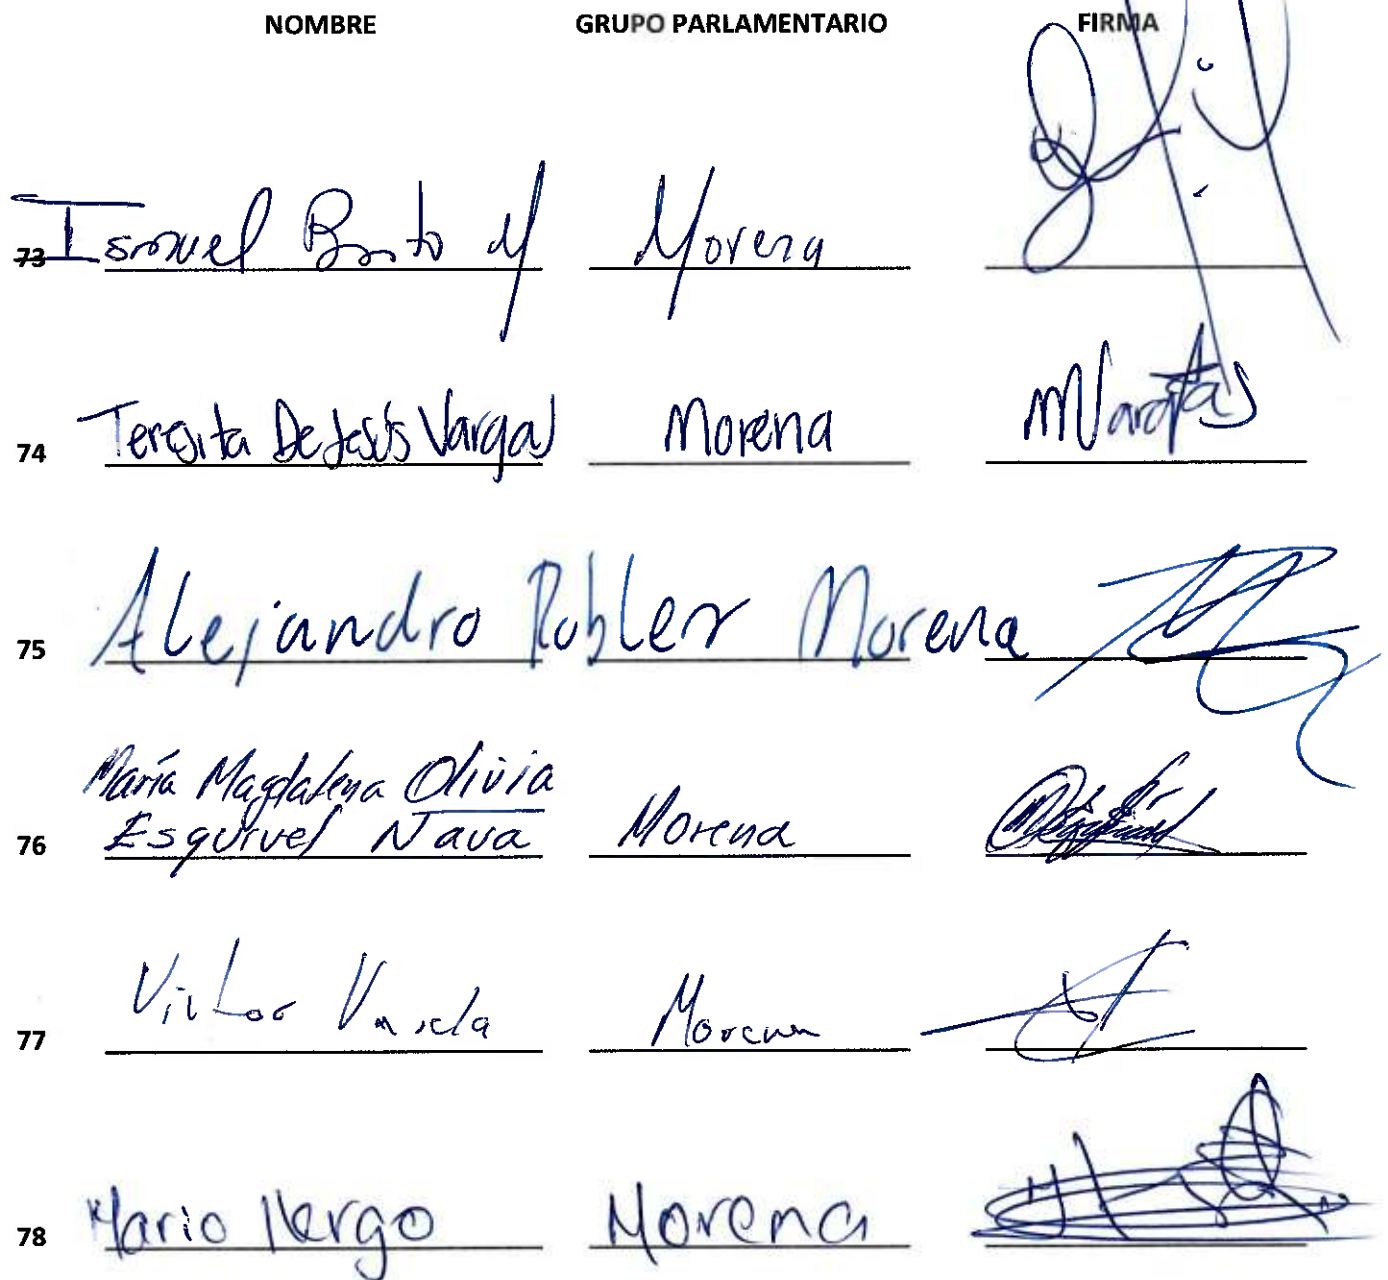 NOMBRE GRUPO PARLAMENTARIO FIRMA
73 Ismael Brito M Morena
74 Teresita De Jesús Vargas Morena MVargas
75 Alejandro Robles Morena
María Magdalena Olivia
76 Esquivel Nava Morena
77 Victor Varela Morena
78 Mario Llergo Morena